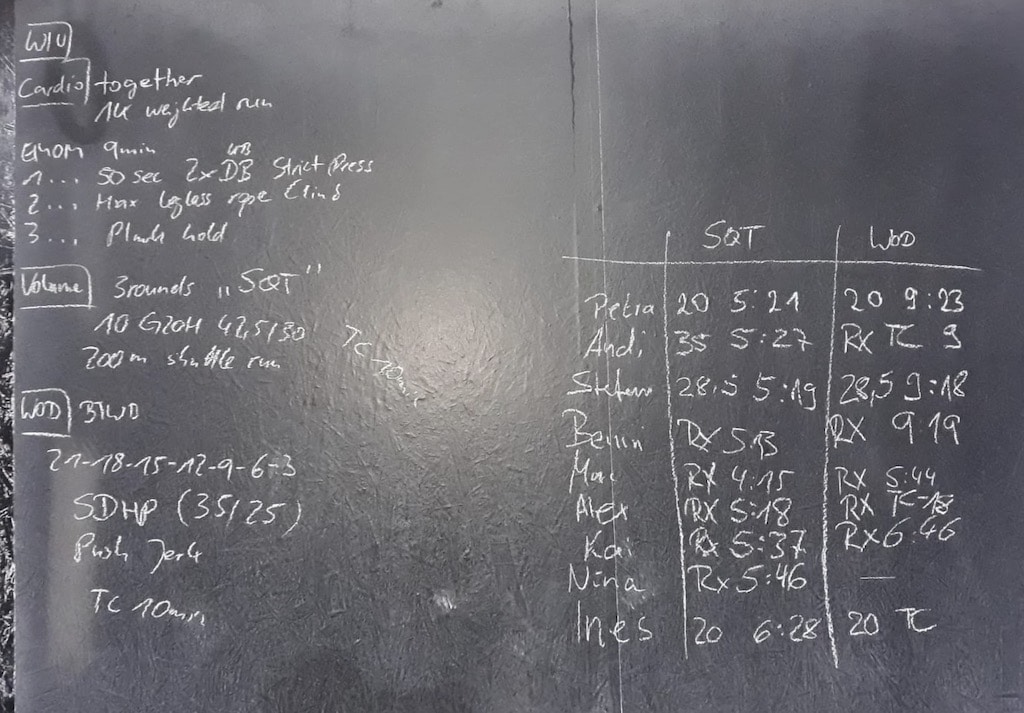 W/U
Cardio together
1k weighted run
EMOM 9min
1... 50 sec 2xDB Strict Press
2... Max legless rope Climb
3... Plank hold
Volume 3rounds „SQT"
10 G2OH 42,5/30
200m shuttle run
TC 10min
WOD BTWD
21-18-15-12-9-6-3
SDHP (35/25)
Push Jerk
TC 10min
SQT WOD
Petra 20 5:21 20 9:23
Andi 35 5:27 RX TC 9
Stefan 28,5 5:19 28,5 9:18
Benni RX 5:13 RX 9 19
Marc RX 4:15 RX 5:44
Alex RX 5:18 RX TC-18
Kai Rx 5:37 Rx 6:46
Nina Rx 5:46 —
Ines 20 6:28 20 TC